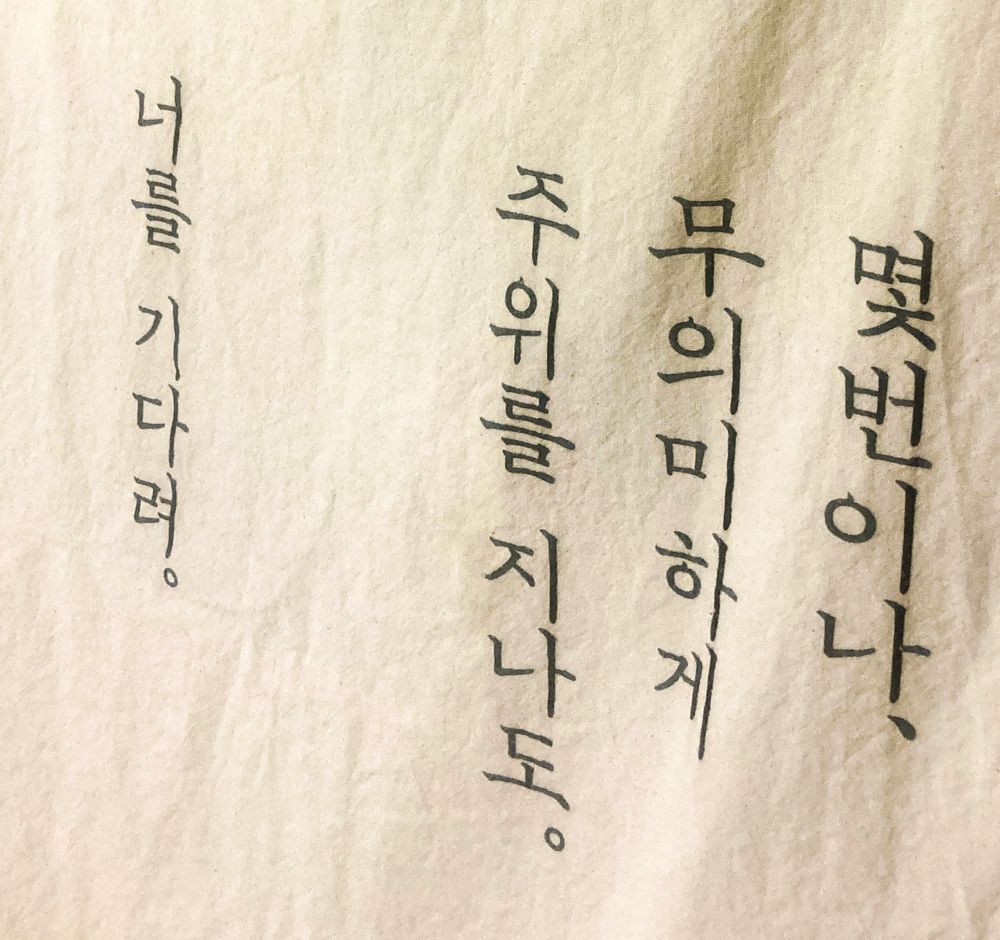 몇번이나,
무의미하게
주위를 지나도。
너를 기다려。